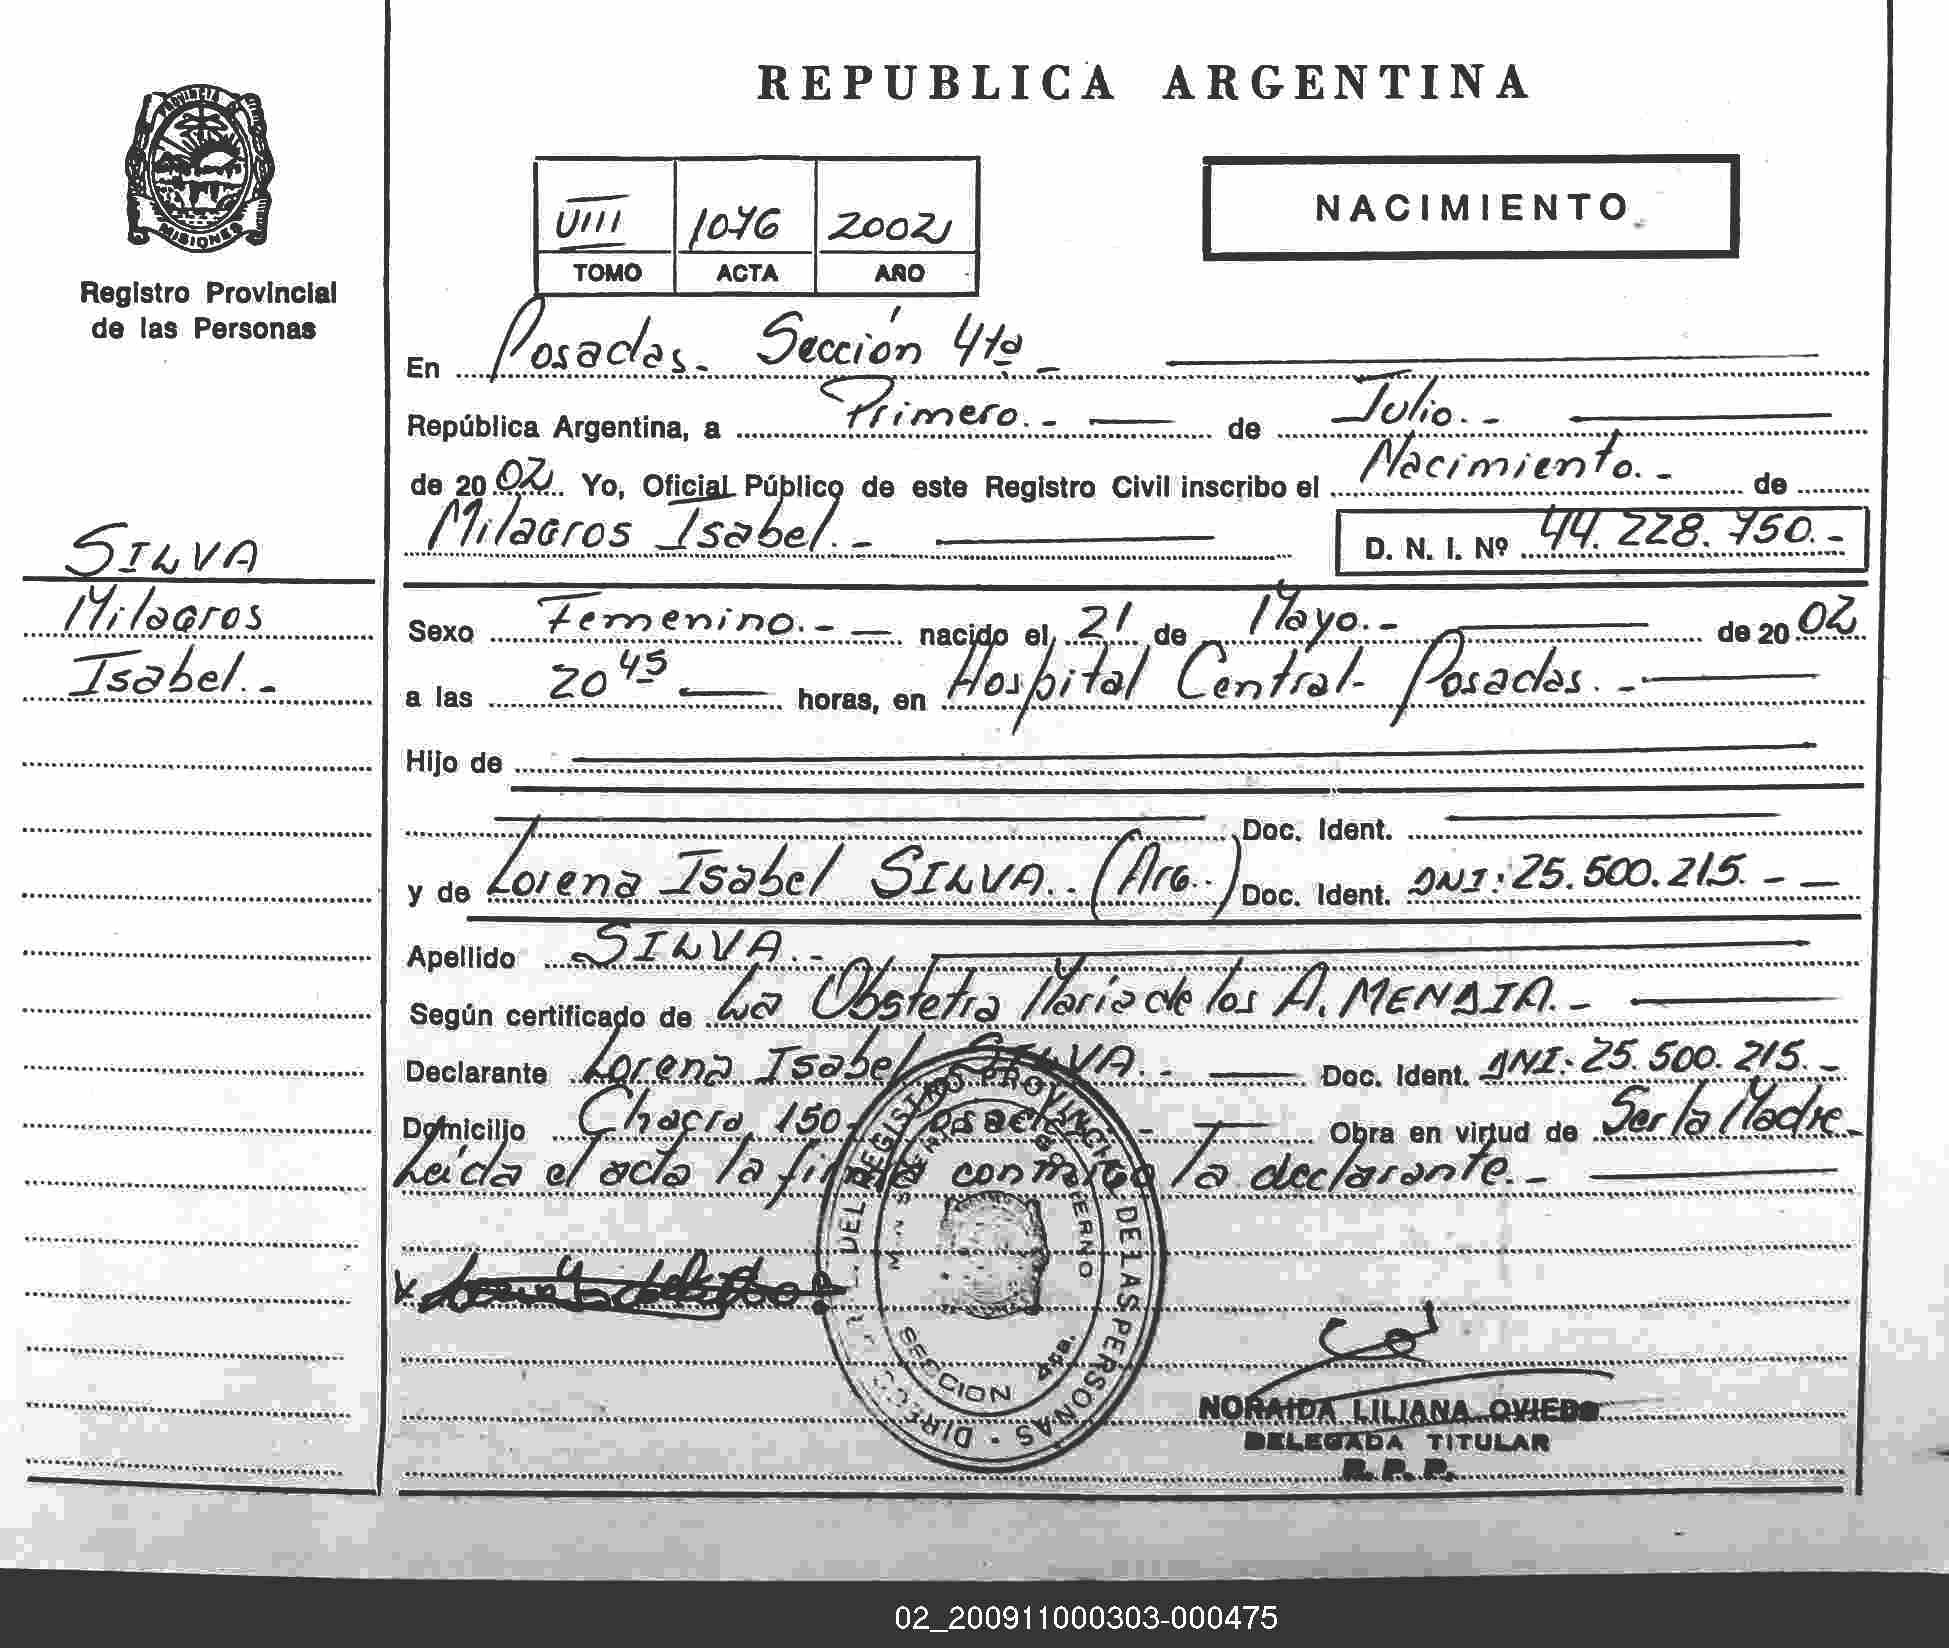 REPUBLICA ARGENTINA
PROVINCIA
MISIONES
Registro Provincial
de las Personas
VIII 1076 2002
TOMO ACTA AÑO
NACIMIENTO
En Posadas.- Sección 4ta.-
República Argentina, a Primero.- de Julio.-
de 2002. Yo, Oficial Público de este Registro Civil inscribo el Nacimiento.- de
Milagros Isabel.- D. N. I. Nº 44.228.750.-
SILVA
Milagros
Isabel.-
Sexo Femenino.- nacido el 21 de Mayo.- de 2002
a las 20 45 horas, en Hospital Central- Posadas.-
Hijo de
Doc. Ident.
y de Lorena Isabel SILVA.. (Arg..) Doc. Ident. DNI: 25.500.215.-
Apellido SILVA.-
Según certificado de La Obstetra María de los A. MENDIA.-
Declarante Lorena Isabel SILVA.- Doc. Ident. DNI: 25.500.215.-
Domicilio Chacra 150- Posadas.- Obra en virtud de Ser la Madre.-
Leída el acta la firma conmigo la declarante.-
DEL REGISTRO PROVINCIAL DE LAS PERSONAS
GOBIERNO
SECCION 4ta.
NORAIDA LILIANA OVIEDO
DELEGADA TITULAR
R. P. P.
02_200911000303-000475